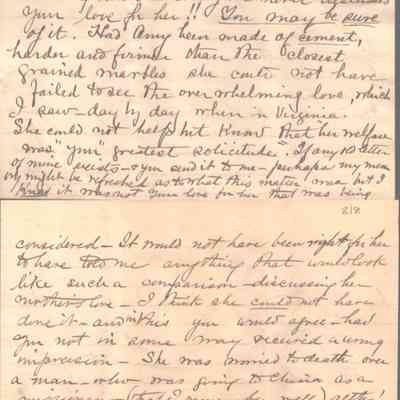 your love for her!! You may be sure
of it. Had Amy been made of cement,
harder and firmer than the closest
grained marbles she could not have
failed to see the overwhelming love, which
I saw - day by day when in Virginia.
She could not help but know that "her welfare
was "your" greatest solicitude". If any letter
of mine exists - & you send it to me - perhaps my mem
ory might be refreshed as to what this matter was but I
know it was not your love for her that was being
2/8
considered - It would not have been right for her
to have told me anything that would look
like such a comparison - discussing her
mother's love - I think she could not have
done it - and in this you would agree - had
you not in some way received a wrong
impression - She was worried to death over
a man - who was going to China as a